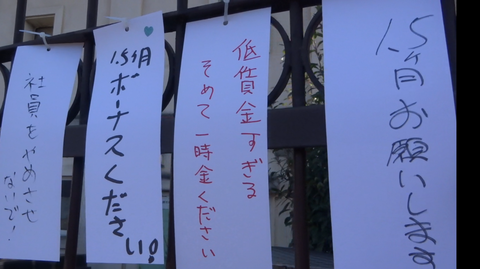 1.5ヶ月お願いします
低賃金すぎる
そめて一時金ください
1.5ヶ月ボーナスください!
社員をやめさせ
ないで!